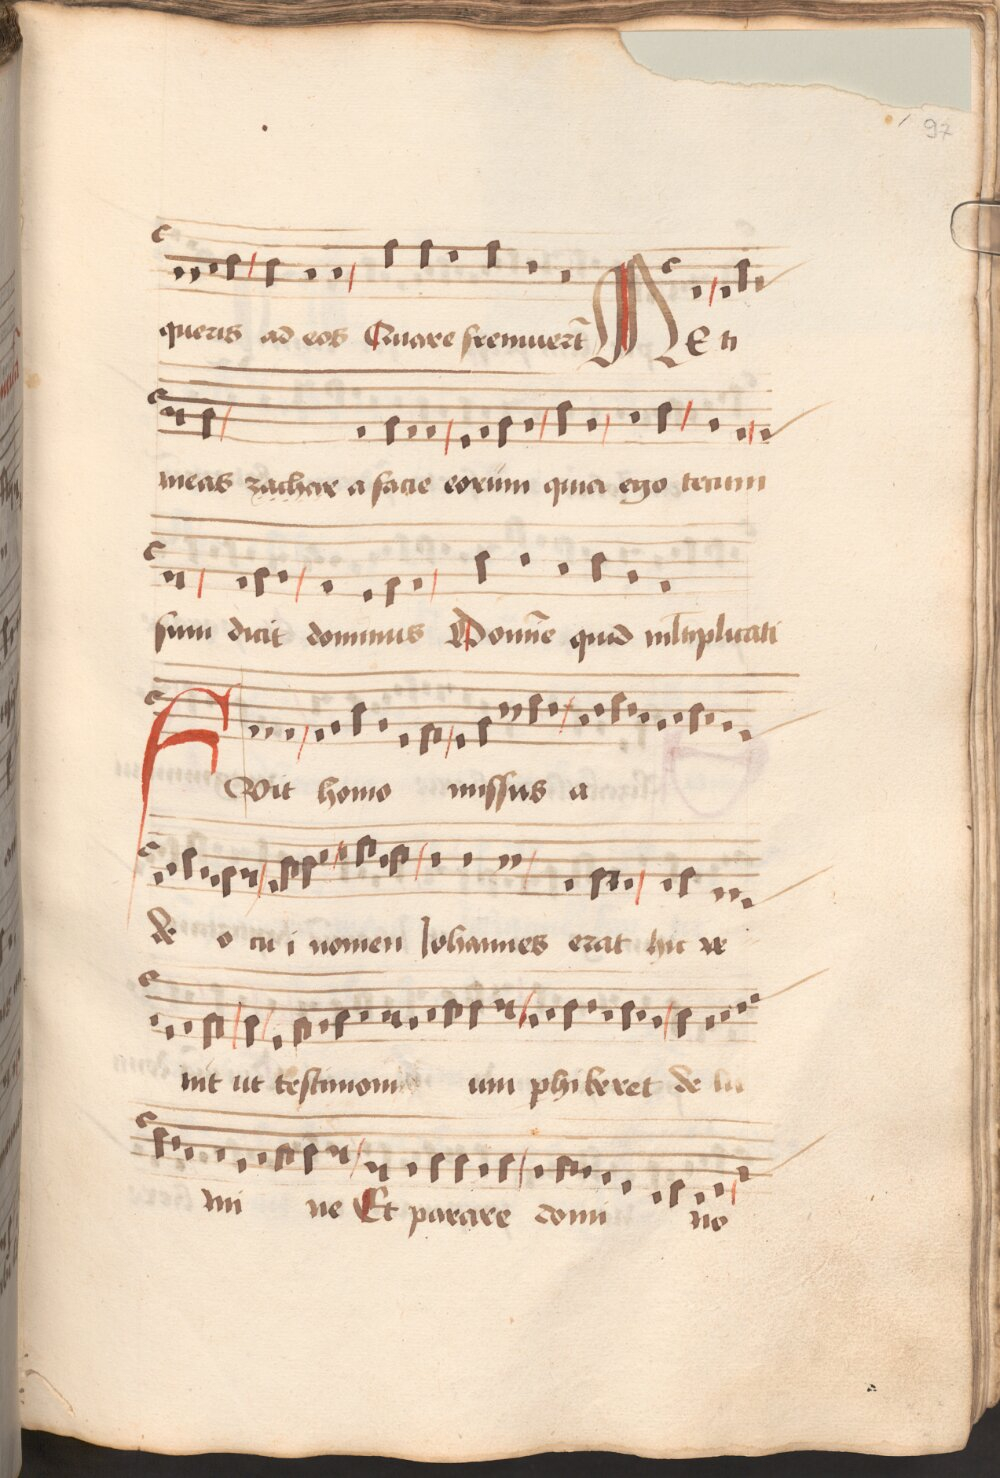 97
queris ad eos Quare fremuert̄ NE ti
meas zachar a facie eorum quia ego tecum
sum dicit dominus Domīne quid multiplicati
FVit homo missus a
de o cu i nomen Johannes erat hic ve
nit ut testimoni um phiberet de lu
mi ne Et parare domi no